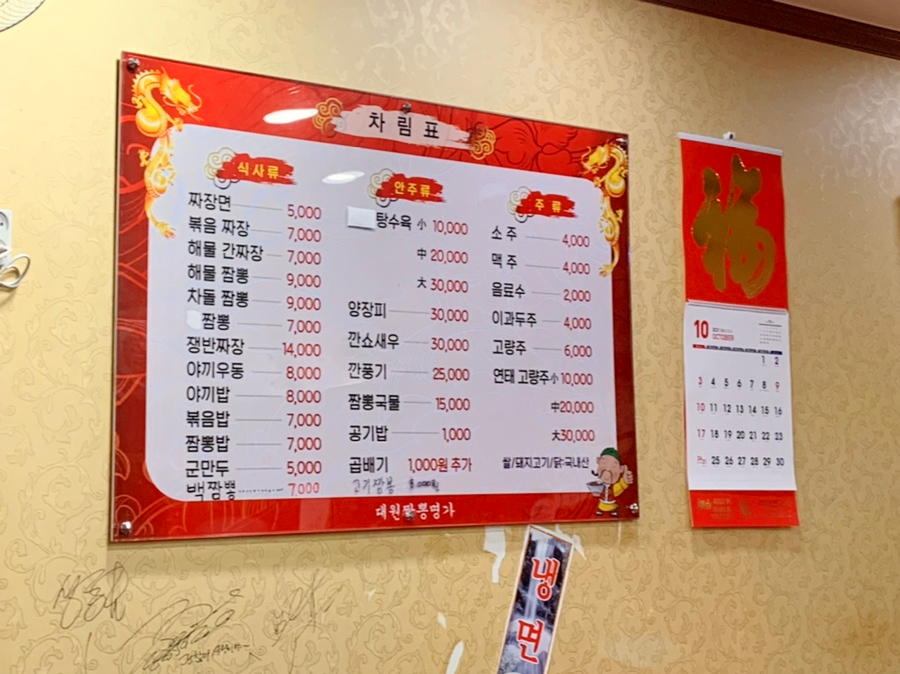 차림표
식사류
짜장면 5,000
볶음 짜장 7,000
해물 간짜장 7,000
해물 짬뽕 9,000
차돌 짬뽕 9,000
짬뽕 7,000
쟁반짜장 14,000
야끼우동 8,000
야끼밥 8,000
볶음밥 7,000
짬뽕밥 7,000
군만두 5,000
백짬뽕 7,000
안주류
탕수육 小 10,000
中 20,000
大 30,000
양장피 30,000
깐쇼새우 30,000
깐풍기 25,000
짬뽕국물 15,000
공기밥 1,000
곱배기 1,000원 추가
고기짬뽕
주류
소주 4,000
맥주 4,000
음료수 2,000
이과두주 4,000
고량주 6,000
연태 고량주 小 10,000
中 20,000
大 30,000
쌀/돼지고기/닭:국내산
대원짬뽕명가
福
10
OCTOBER
1 2
3 4 5 6 7 8 9
10 11 12 13 14 15 16
17 18 19 20 21 22 23
25 26 27 28 29 30
냉면